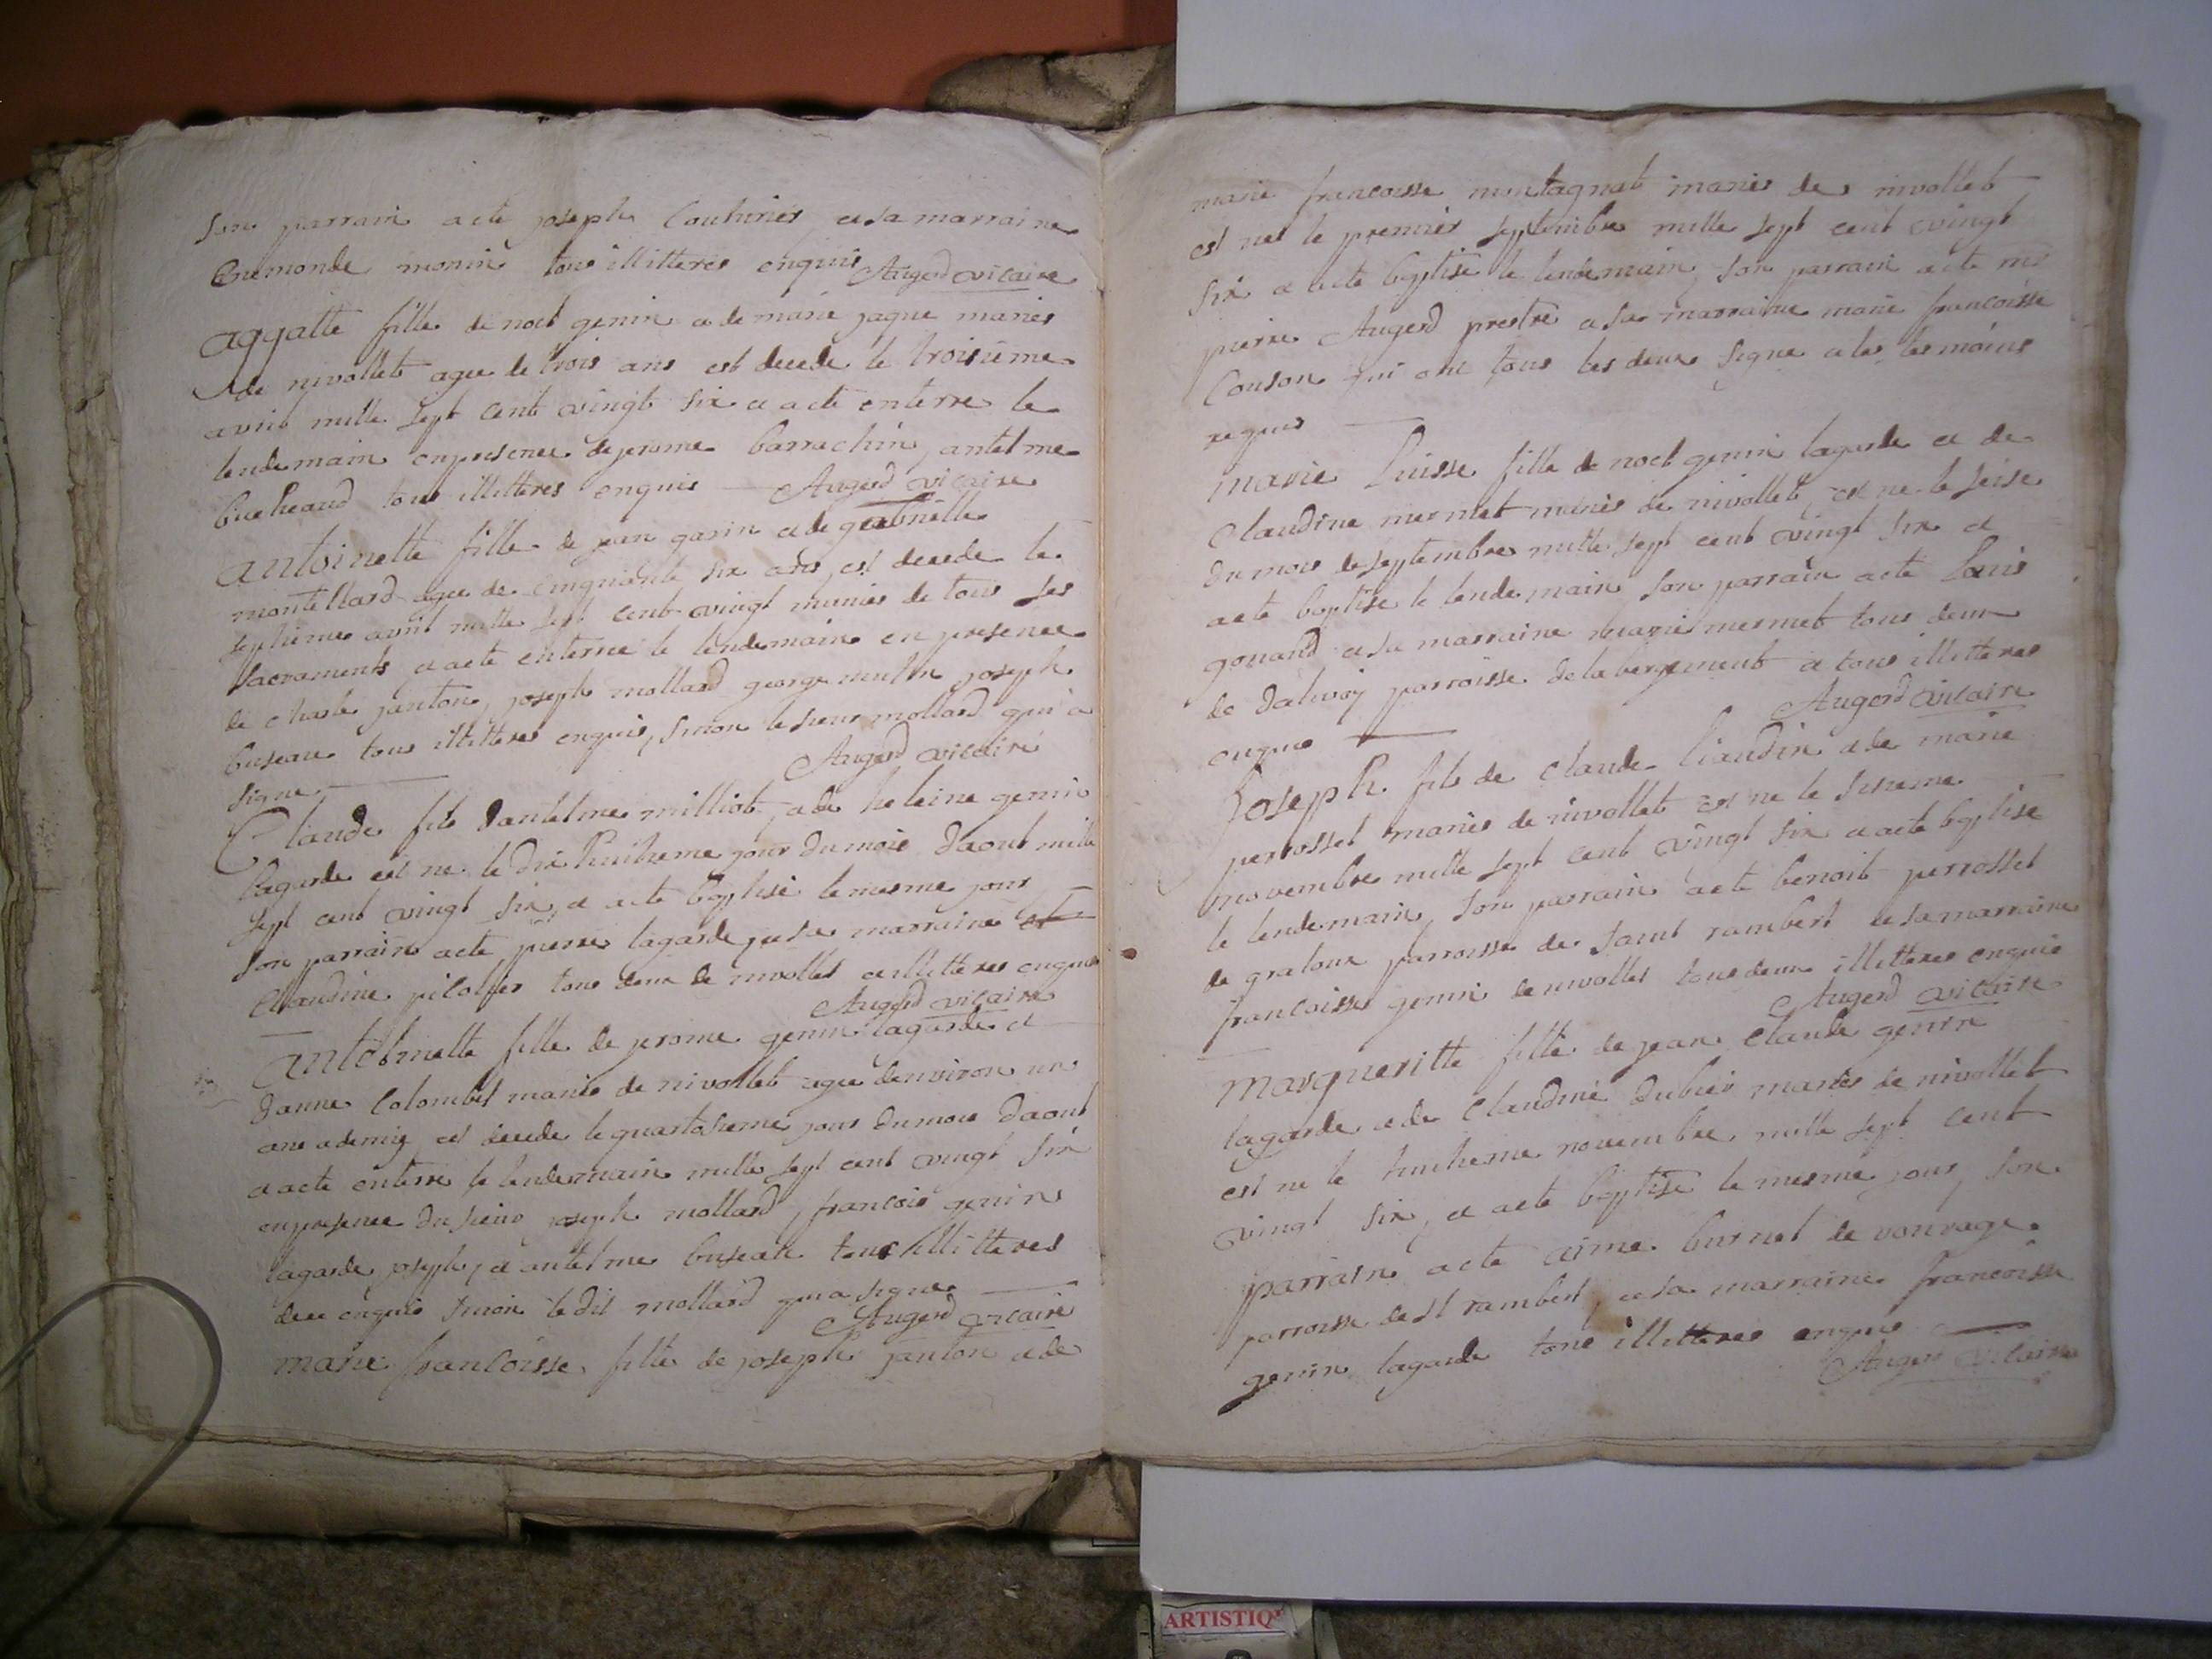 son parrain a ete joseph Couturier, et sa marraine
monin tous illitteres enquis Augerd vicaire
aggatte fille de noel genin et de marie jaque maries
de nivollet agee de trois ans est decede le troisieme
avril mille sept cent vingt six et a ete enterre le
lendemain en presence de jerome barrachin, antelme
tous illitteres enquis Augerd vicaire
antoinette fille de jean garin et de gabrielle
montellard agee de cinquante six ans, est decede le
septieme avril mille sept cent vingt munies de tous ses
sacraments, et a ete enterree le lendemain en presence
de charle janton, joseph mollard george joseph
buseau tous illitteres enquis, sinon le sieur mollard qui a
signe Augerd vicaire
Claude fils dantelme milliot, et de heleine genin
lagarde est ne le dix huitieme jour du mois daout mille
sept cent vingt six, et a ete baptise le mesme jour
son parrain a ete, pierre lagarde, et sa marraine et
Claudine tous deux de nivollet et illitteres enquis
Augerd vicaire
antelmette fille de jerome genin lagarde et
danne Colombet maries de nivollet agee denviron un
ans et demiy est decede le quartosieme jour du mois daout
et a ete enterre le lendemain mille sept cent vingt six
en presence du sieur joseph mollard, francois genin
lagarde, joseph, et antelme buseau tous illitteres
enquis sinon le dit mollard qui a signe
Augerd vicaire
marie francoisse, fille de joseph janton et de
marie francoisse montagnat maries de nivollet
est nee le premier septembre mille sept cent vingt
six et a ete baptise le lendemain, son parrain a ete mr
pierre Augerd prestre et sa marraine marie francoisse
Couson qui ont tous les deux signe et les tesmoins
requis
marie Luisse fille de noel genin lagarde et de
claudine mermet maries de nivollet, est ne le seise
du mois de septembre mille sept cent vingt six et
a ete baptise le lendemain son parrain a ete Louis
gonand et sa marraine marie mermet tous deux
de parroisse de labergement et tous illitteres
enquis Augerd vicaire
Joseph fils de claude liaudin et de marie
perrosset maries de nivollet est ne le
novembre mille sept cent vingt six et a ete baptise
le lendemain, son parrain a ete benoit perrosset
de gratoux parroisse de saint rambert et sa marraine
francoisse genin de nivollet tous deux illitteres enquis
Augerd vicaire
margueritte fille de jean claude genin
lagarde et de claudine maries de nivollet
est ne le huitieme novembre mille sept cent
vingt six, et a ete baptise le mesme jour, son
parrain a ete aime burnet de vonrage
parroisse de st rambert, et sa marraine francoisse
genin lagarde tous illitteres enquis
Augerd vicaire
ARTISTIQ